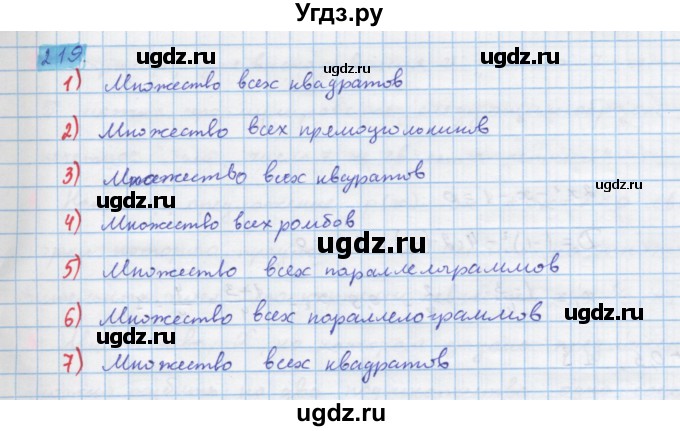 Угдз.ру
219.
ugdz.ru ugdz.ru
1) Множество всех квадратов
ugdz.ru
2) Множество всех прямоугольников
ugdz.ru
3) Множество всех квадратов
ugdz.ru
4) Множество всех ромбов
ugdz.ru
5) Множество всех параллелограммов
ugdz.ru ugdz.ru
6) Множество всех параллелограммов
ugdz.ru
7) Множество всех квадратов
ugdz.ru
ugdz.ru